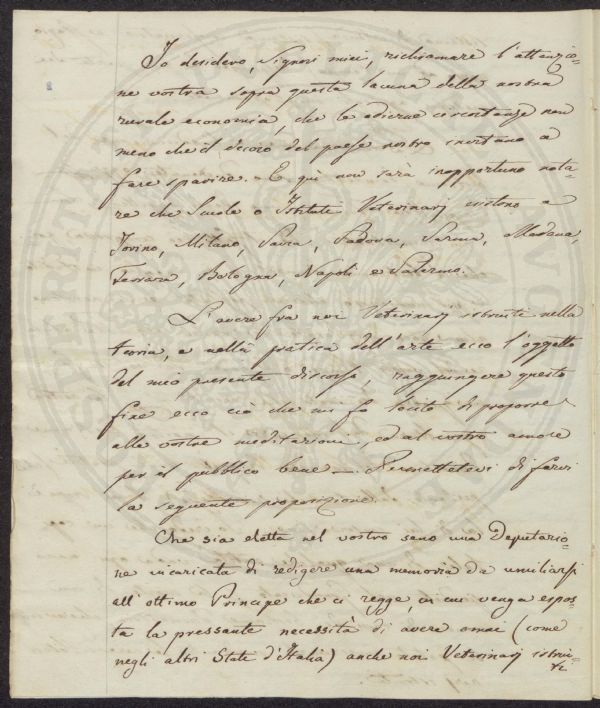 Io desidero, Signori miei, richiamare l'attenzio-
ne vostra sopra questa lacuna della nostra
rurale economia, che le odierne circostanze non
meno che il decoro del paese nostro esortano a
fare sparire. E quì non sarà inopportuno nota-
re che Scuole o Istituti Veterinarj esistono a
Torino, Milano, Pavia, Padova, Parma, Modena,
Ferrara, Bologna, Napoli e Palermo.
L'avere fra noi Veterinarj istruiti nella
teoria, e nella pratica dell'arte ecco l'oggetto
del mio presente discorso, raggiungere questo
fine ecco ciò che mi fo lecito di proporre
alle vostre meditazioni, ed al vostro amore
per il pubblico bene — Permettetevi di farvi
la seguente proposizione.
Che sia eletta nel vostro seno una Deputazio-
ne incaricata di redigere una memoria da umiliarsi
all'ottimo Principe che ci regge, in cui venga espos-
ta la pressante necessità di avere omai (come
negli altri Stati d'Italia) anche noi Veterinarj istrui-
ti